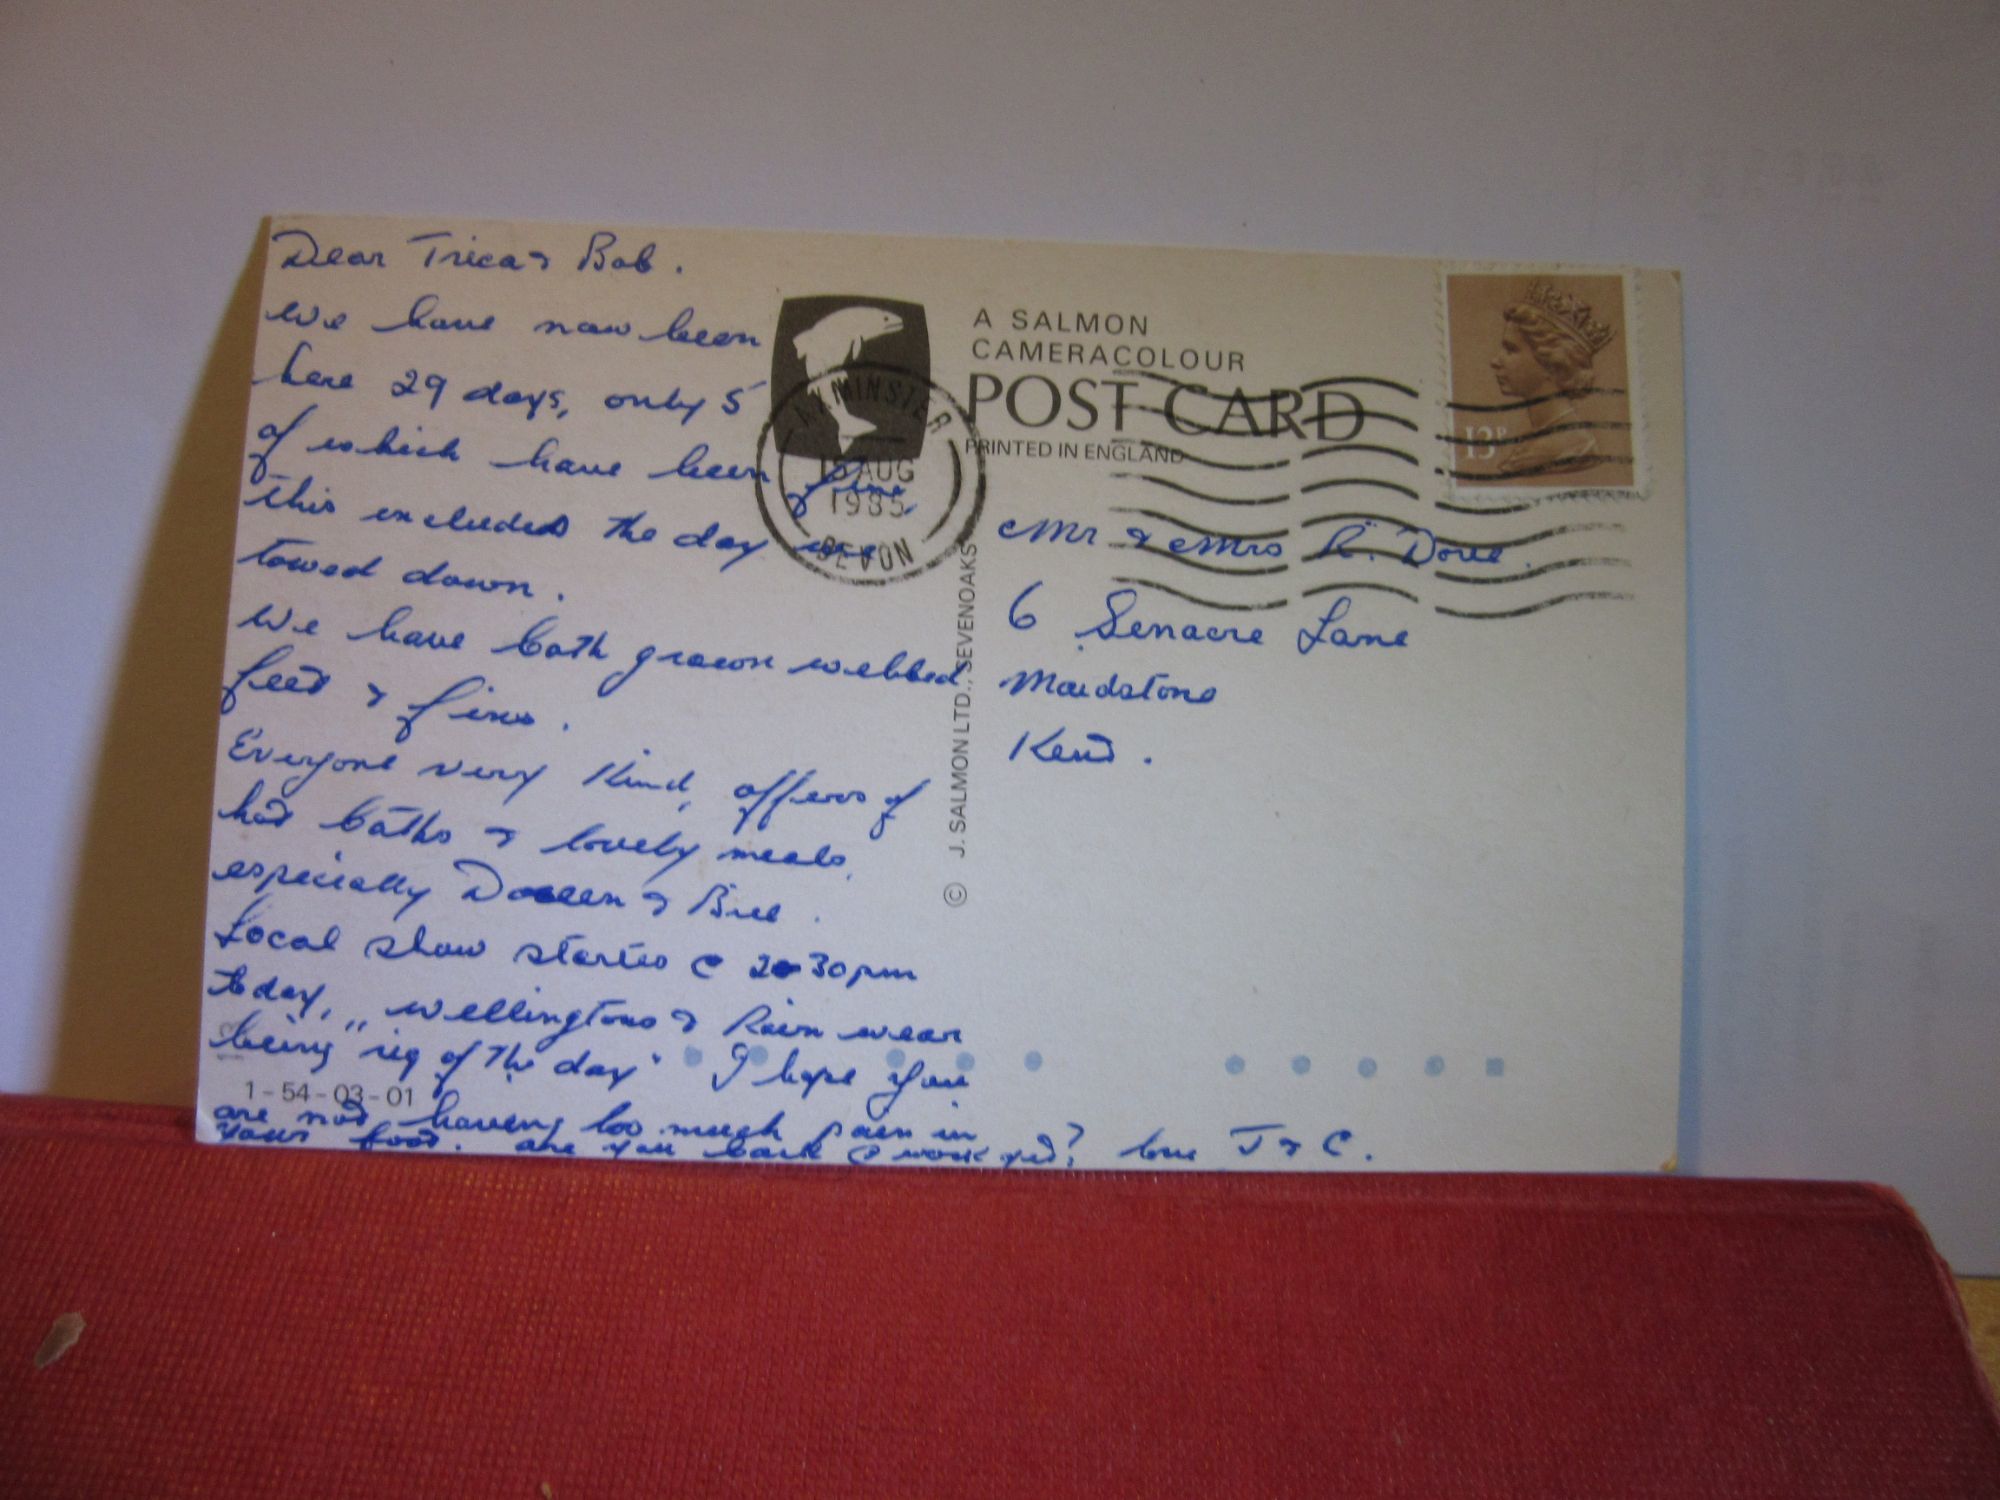 Dear Trica & Bob.
We have now been
here 29 days, only 5
of which have been fine
this included the day we
towed down.
We have both grown webbed
feet & fins.
Everyone very kind, offers of
hot baths & lovely meals,
especially Doreen & Bill.
Local show started @ 2.30pm
today, "wellingtons & Rain wear
being "rig of the day" I hope you
are not having too much pain in
your foot. are you back @ work yet? love J & C.
1-54-03-01
A SALMON
CAMERACOLOUR
POST CARD
PRINTED IN ENGLAND
AXMINSTER
AUG
1985
DEVON
13P
© J. SALMON LTD., SEVENOAKS
Mr & Mrs R. Dove.
6 Senacre Lane
Maidstone
Kent.